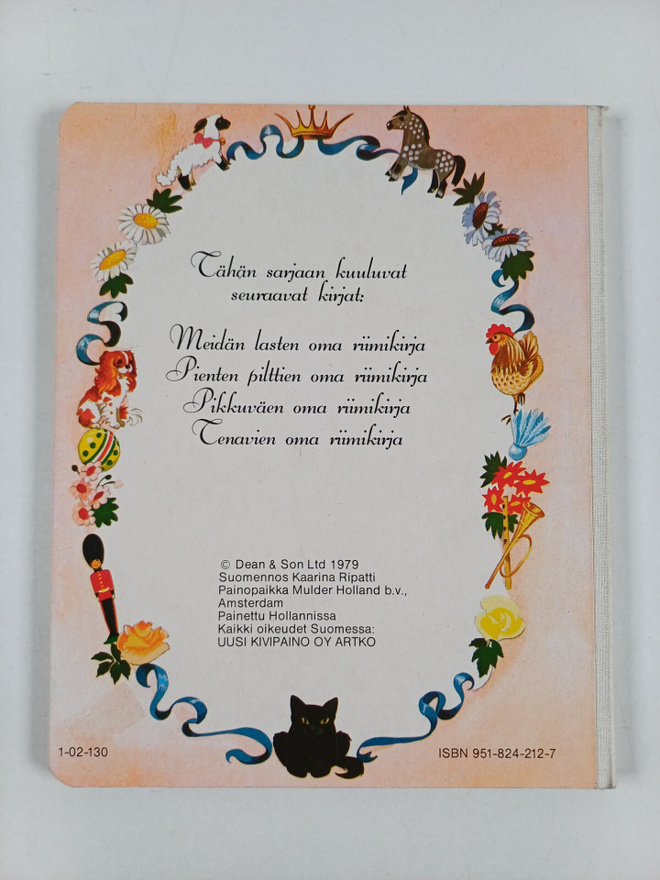 Tähän sarjaan kuuluvat
seuraavat kirjat:
Meidän lasten oma riimikirja
Pienten pilttien oma riimikirja
Pikkuväen oma riimikirja
Tenavien oma riimikirja
© Dean & Son Ltd 1979
Suomennos Kaarina Ripatti
Painopaikka Mulder Holland b.v.,
Amsterdam
Painettu Hollannissa
Kaikki oikeudet Suomessa:
UUSI KIVIPAINO OY ARTKO
1-02-130
ISBN 951-824-212-7